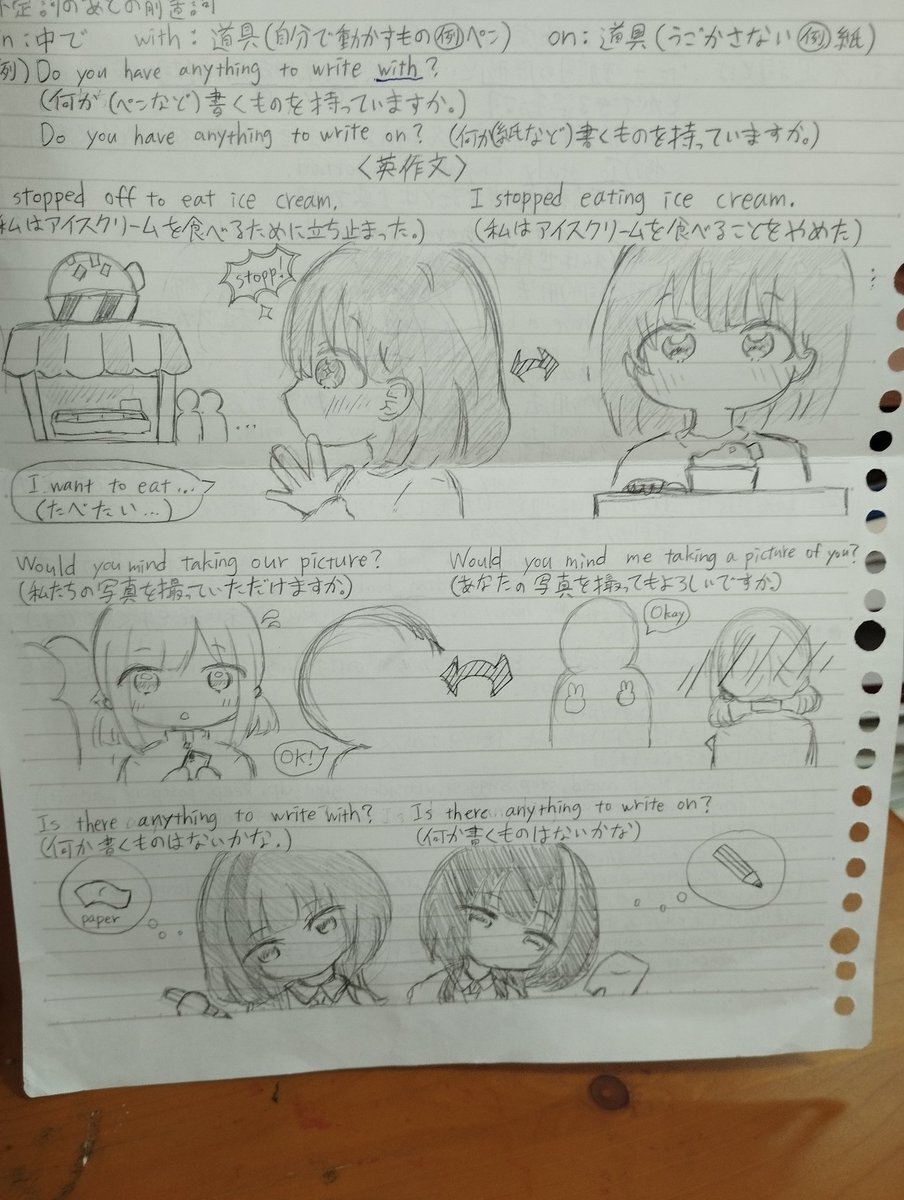 不定詞のあとの前置詞
n:中で with:道具(自分で動かすもの例ペン) on:道具(うごかさない例紙)
例) Do you have anything to write with?
(何か(ペンなど)書くものを持っていますか。)
Do you have anything to write on? (何か(紙など)書くものを持っていますか。)
〈英作文〉
stopped off to eat ice cream.
私はアイスクリームを食べるために立ち止まった。)
I stopped eating ice cream.
(私はアイスクリームを食べることをやめた)
stopp!
...
I want to eat...
(たべたい...)
Would you mind taking our picture?
(私たちの写真を撮っていただけますか。)
Would you mind me taking a picture of you?
(あなたの写真を撮ってもよろしいですか。)
OK!
Okay
Is there anything to write with?
(何か書くものはないかな.)
Is there anything to write on?
(何か書くものはないかな)
paper